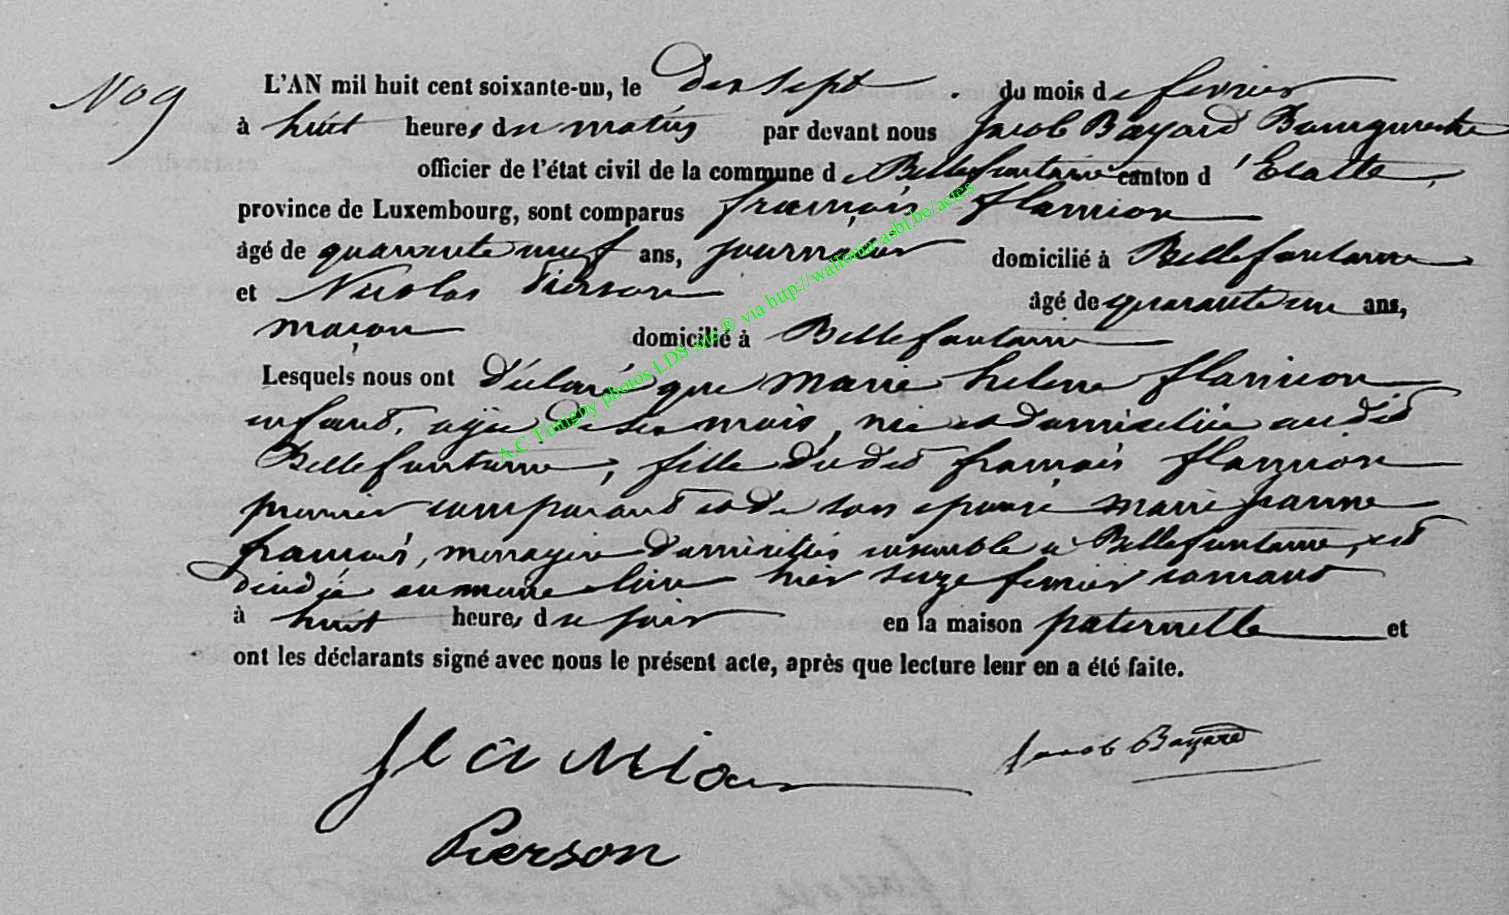 No 9
L'AN mil huit cent soixante-un, le dix sept du mois de fevrier
à huit heures du matin par devant nous Jacob Bayard Bourgmestre
officier de l'état civil de la commune de Bellefontaine canton d'Etalle,
province de Luxembourg, sont comparus françois flamion
âgé de quarante neuf ans, journalier domicilié à Bellefontaine
et Nicolas Pierson âgé de quarante un ans,
maçon domicilié à Bellefontaine
Lesquels nous ont déclaré que marie helene flamion
enfant, agée de six mois, née et domiciliée au dit
Bellefontaine, fille du dit françois flamion
premier comparant et de son epouse marie jeanne
françois, menagère domiciliés ensemble à Bellefontaine, est
décédée au même lieu hier seize fevrier courant
à huit heures du soir en la maison paternelle et
ont les déclarants signé avec nous le présent acte, après que lecture leur en a été faite.
flamion Jacob Bayard
Pierson
A.C Tintigny photos LDS site ® via http://wallonia-asbl.be/actes